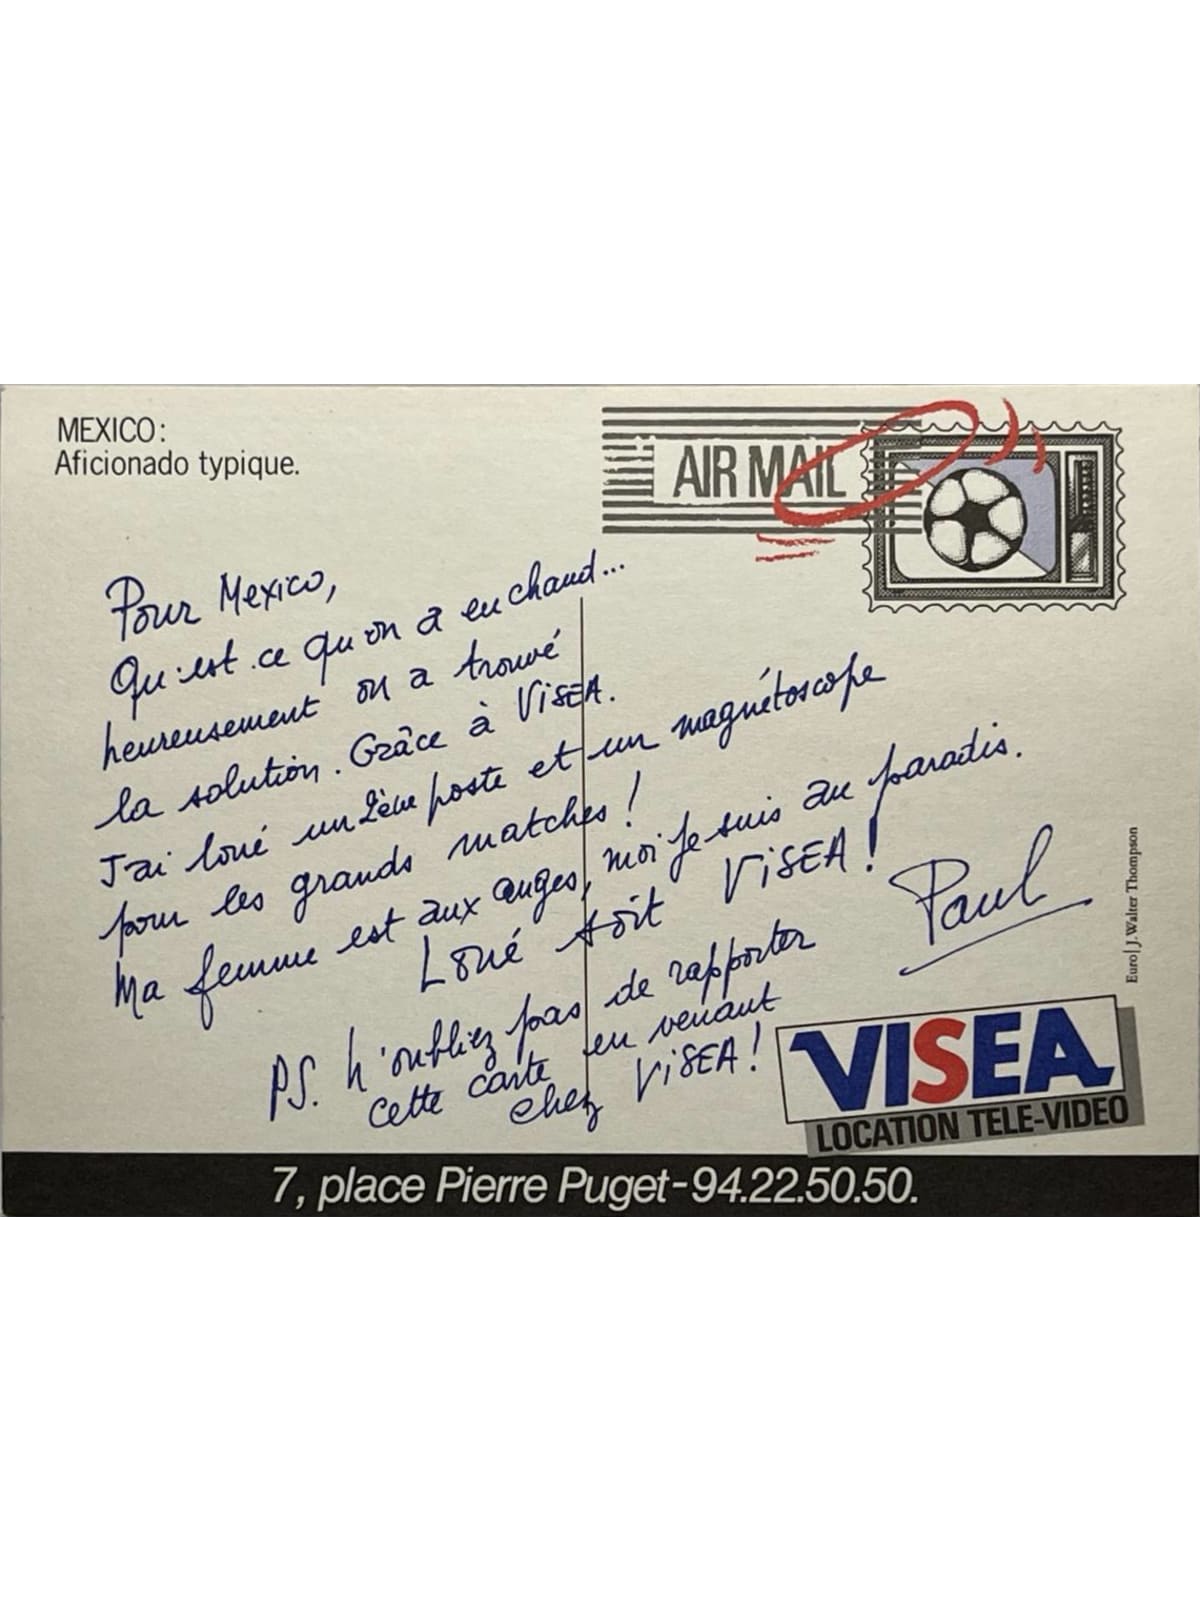 MEXICO:
Aficionado typique.
AIR MAIL
Pour Mexico,
Qu'est ce qu'on a eu chaud...
heureusement on a trouvé
la solution. Grâce à ViSEA.
J'ai loué un 2ème poste et un magnétoscope
pour les grands matches!
Ma femme est aux anges, moi je suis au paradis.
Loué soit ViSEA!
Paul
PS. N'oubliez pas de rapporter
cette carte en venant
chez ViSEA!
Euro | J. Walter Thompson
VISEA
LOCATION TELE-VIDEO
7, place Pierre Puget-94.22.50.50.